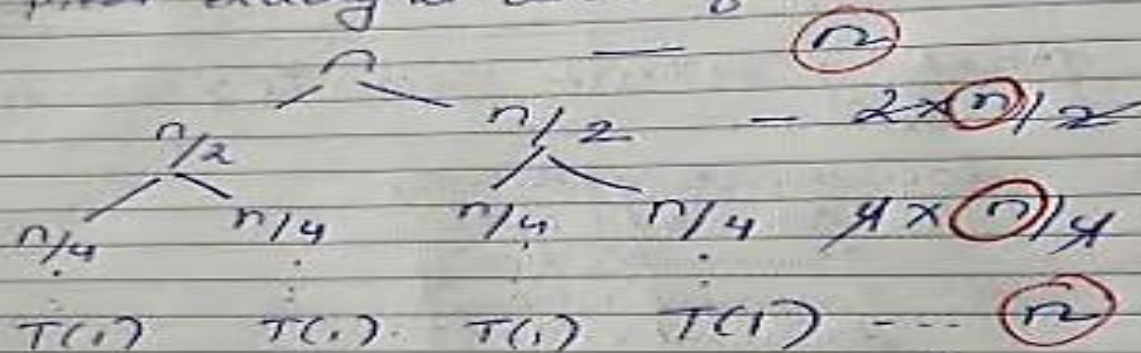 n — n
n/2 n/2 - 2×n/2
n/4 n/4 n/4 n/4 4×n/4
T(1) T(1) T(1) T(1) ---- n